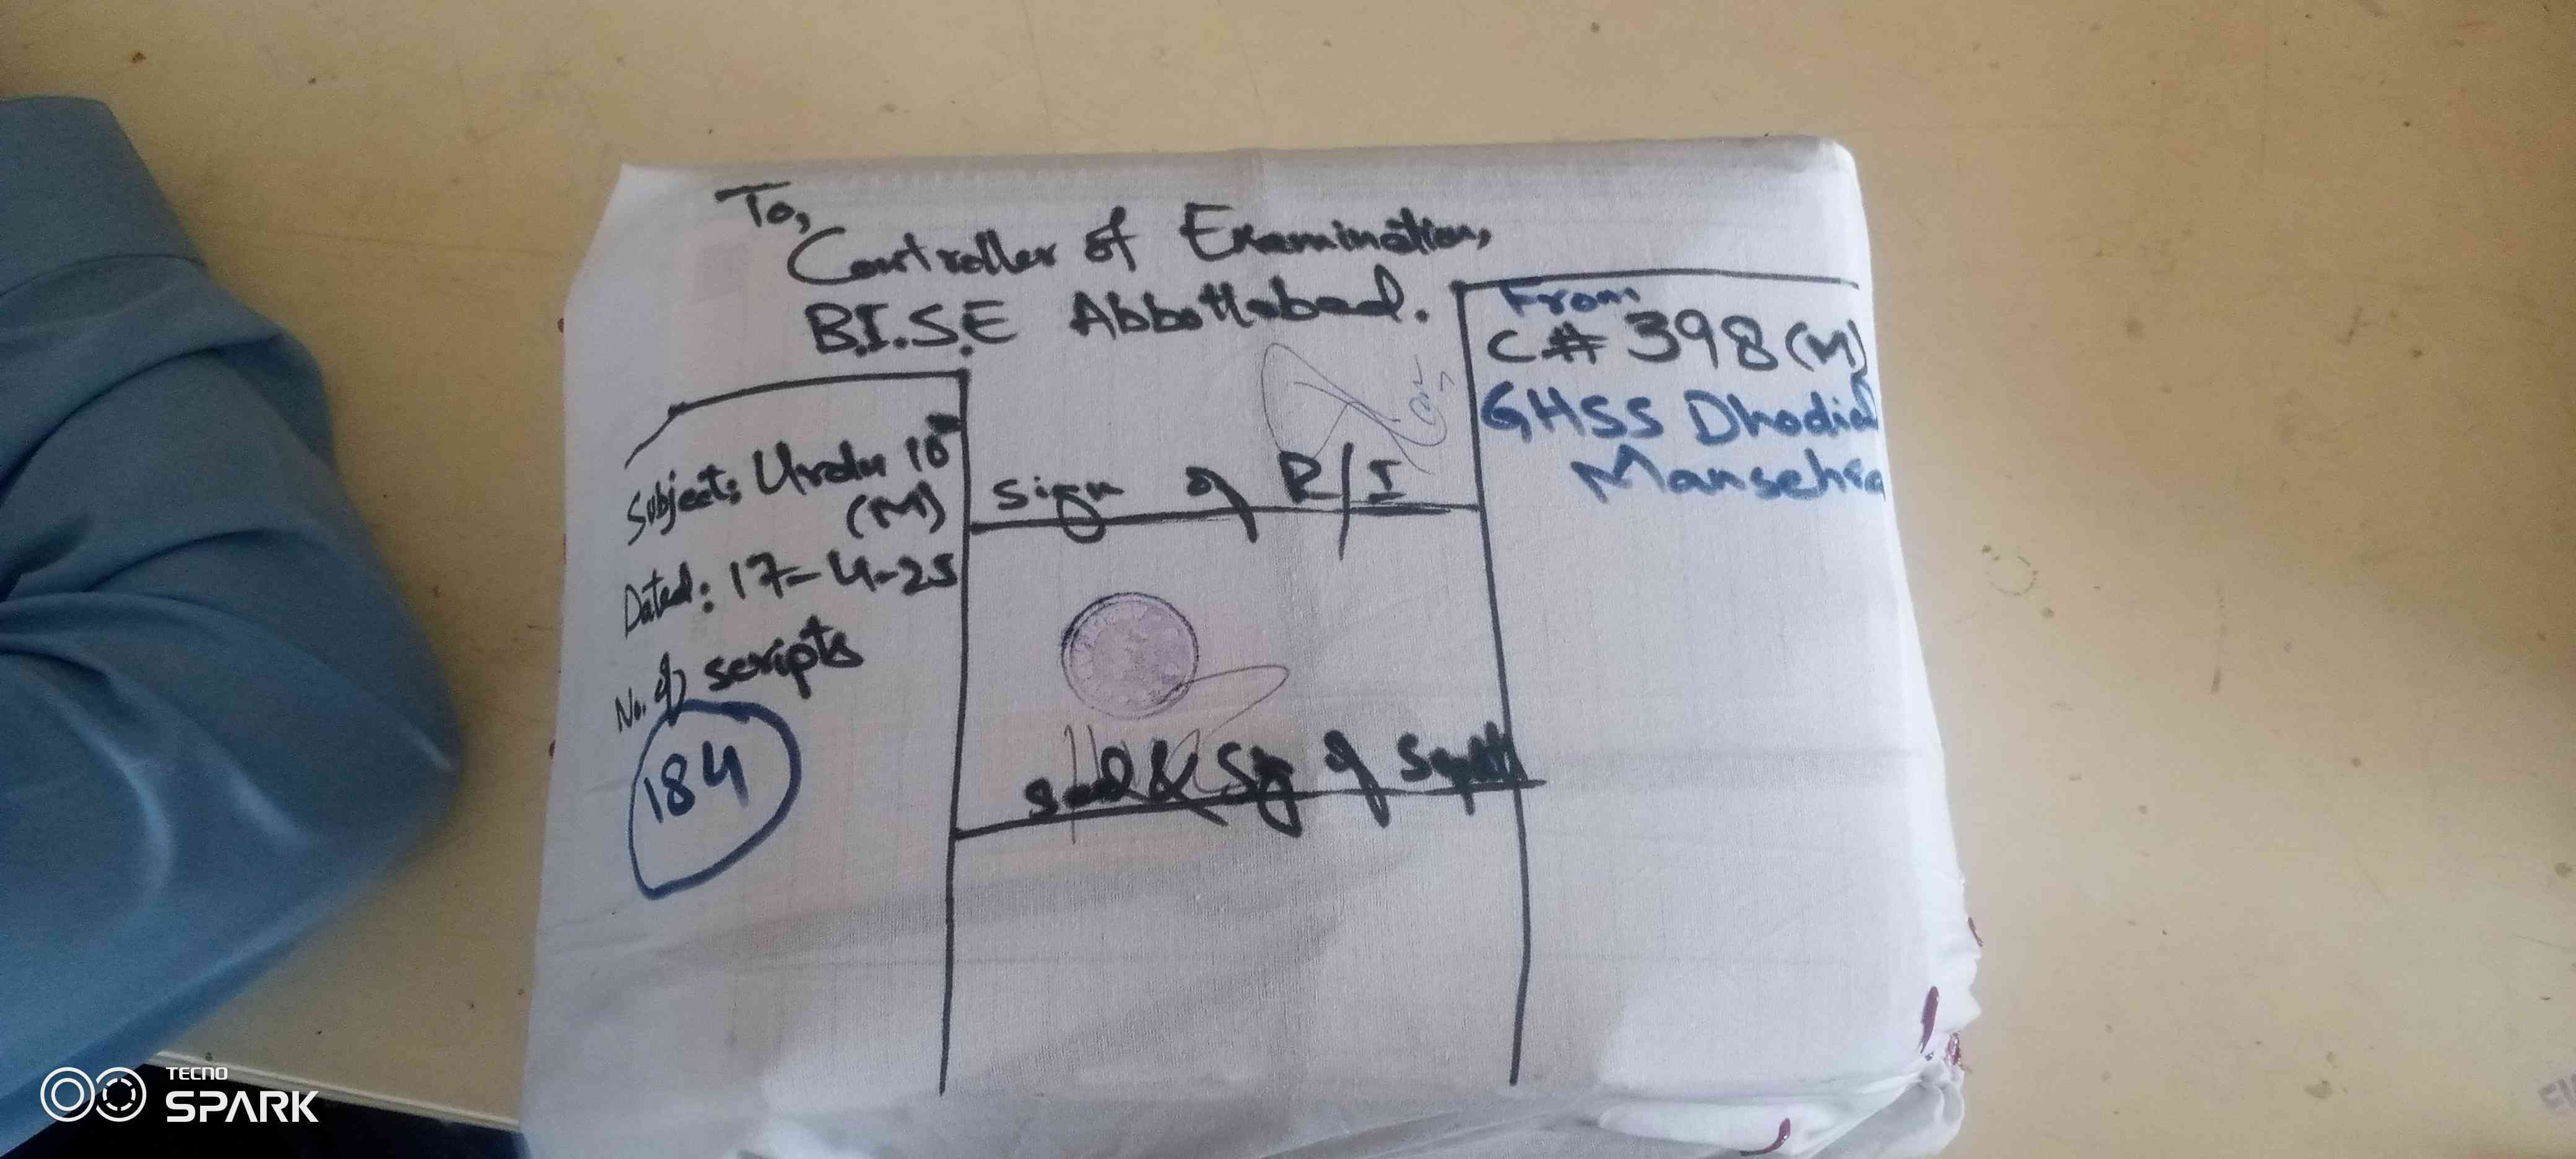 To,
Controller of Examination,
B.I.S.E Abbottabad.
From
C# 398 (M)
GHSS Dhodial
Mansehra
Subject: Urdu 10th
(M)
Dated: 17-4-25
No. of scripts
184
Sign of R/I
Seal & Sig of Supdt
TECNO
SPARK